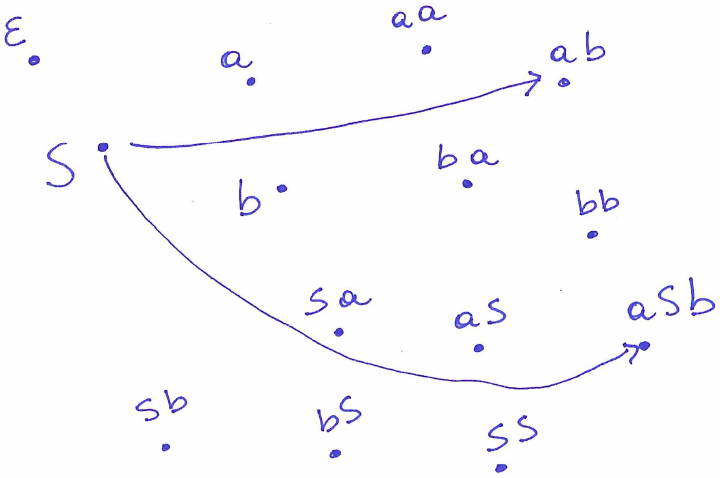 ε
a
aa
ab
S
b
ba
bb
Sa
aS
aSb
Sb
bS
SS